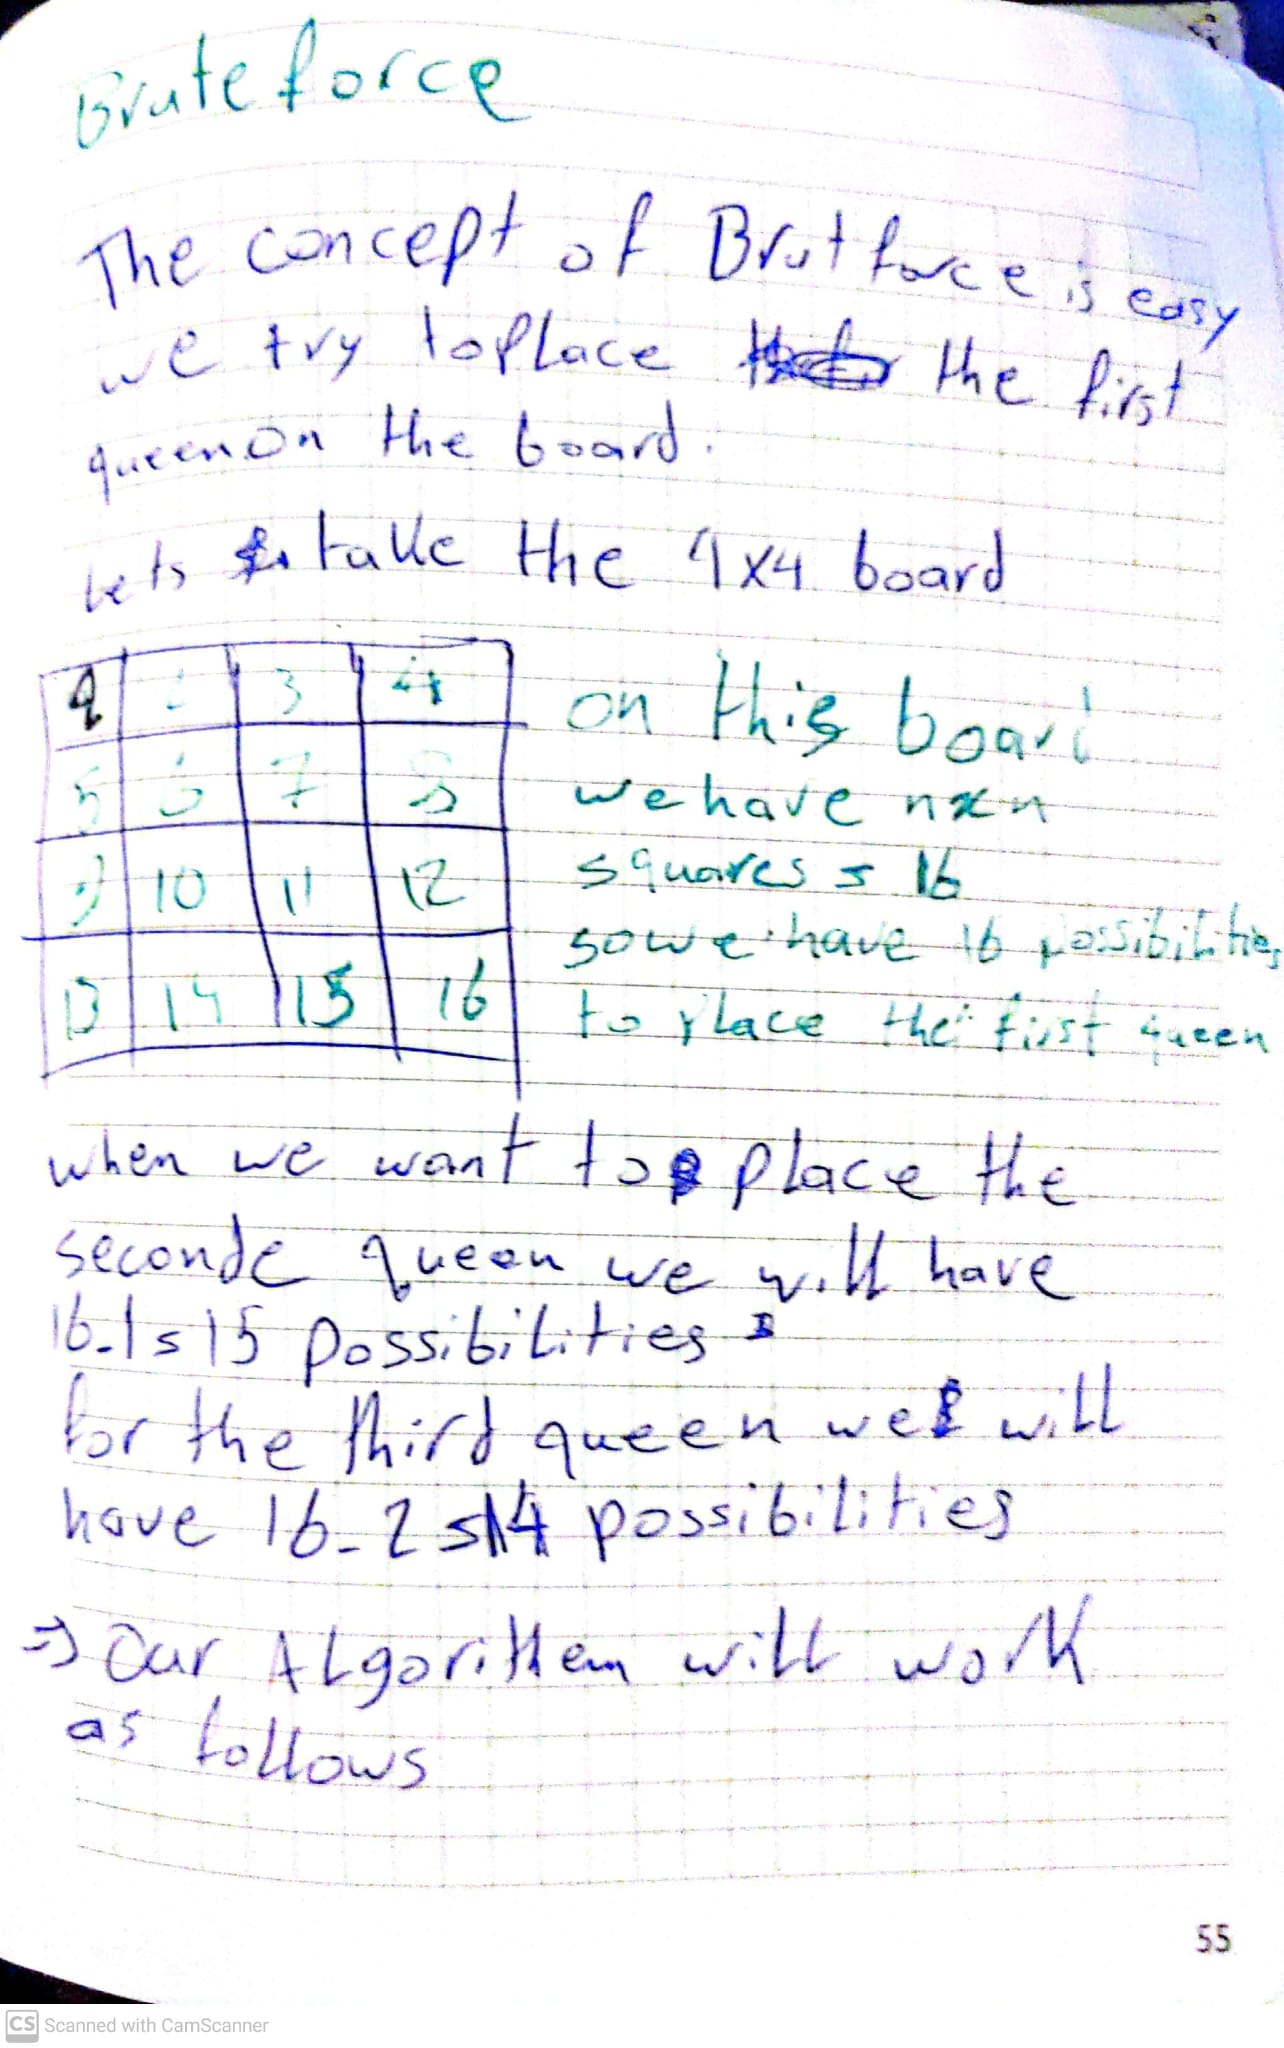 Brute force
The concept of Brut force is easy
we try to place the first
queen on the board.
Lets take the 4x4 board
q 2 3 4
5 6 7 8
9 10 11 12
13 14 15 16
on this board
we have nxn
squares = 16
so we have 16 possibilities
to place the first queen
when we want to place the
seconde queen we will have
16-1=15 possibilities
for the third queen we will
have 16-2=14 possibilities
=> Our Algorithem will work
as follows
55
CS Scanned with CamScanner